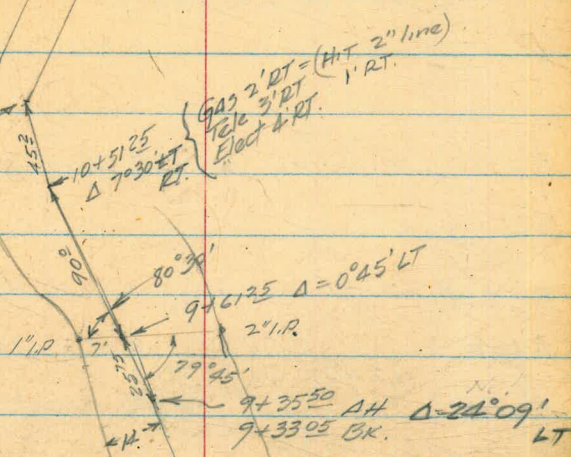 GAS 2' RT = (HIT 2" line)
1' RT.
Tele 3' RT
Elect 4' RT.
45²
10+51²⁵
Δ 7°30' LT
RT.
90⁰
80°30'
9+61²⁵ Δ=0°45' LT
1" I.P.
7'
2" I.P.
25⁷⁵
79°45'
9+35⁵⁰ AH Δ=24°09'
LT
9+33⁰⁵ BK.
14'